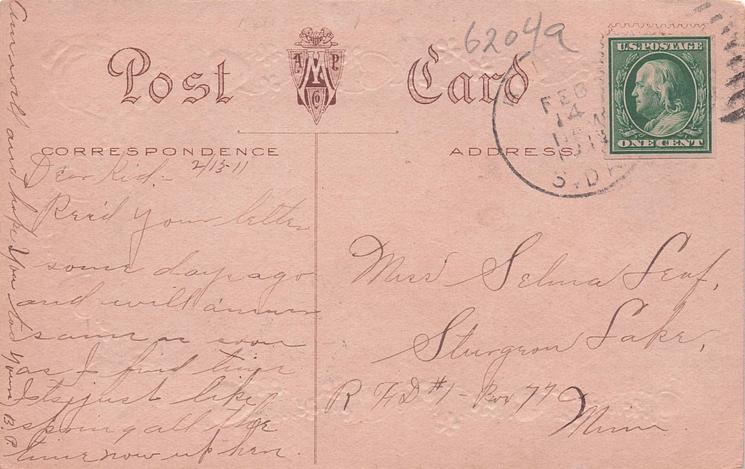 6204a
Post Card
A P
M
Co
U.S.POSTAGE
ONE CENT
FEB
14
S.D
CORRESPONDENCE
ADDRESS
2/13-11
Dear Kid:-
Rec'd your letter
some day ago
and will answer
same as soon
as I find time
Its just like
spring all the
time now up here.
and hope you
too Yours B.P.
Miss Selma Leaf,
Sturgeon Lake,
R F D #1 - Box 77
Minn.